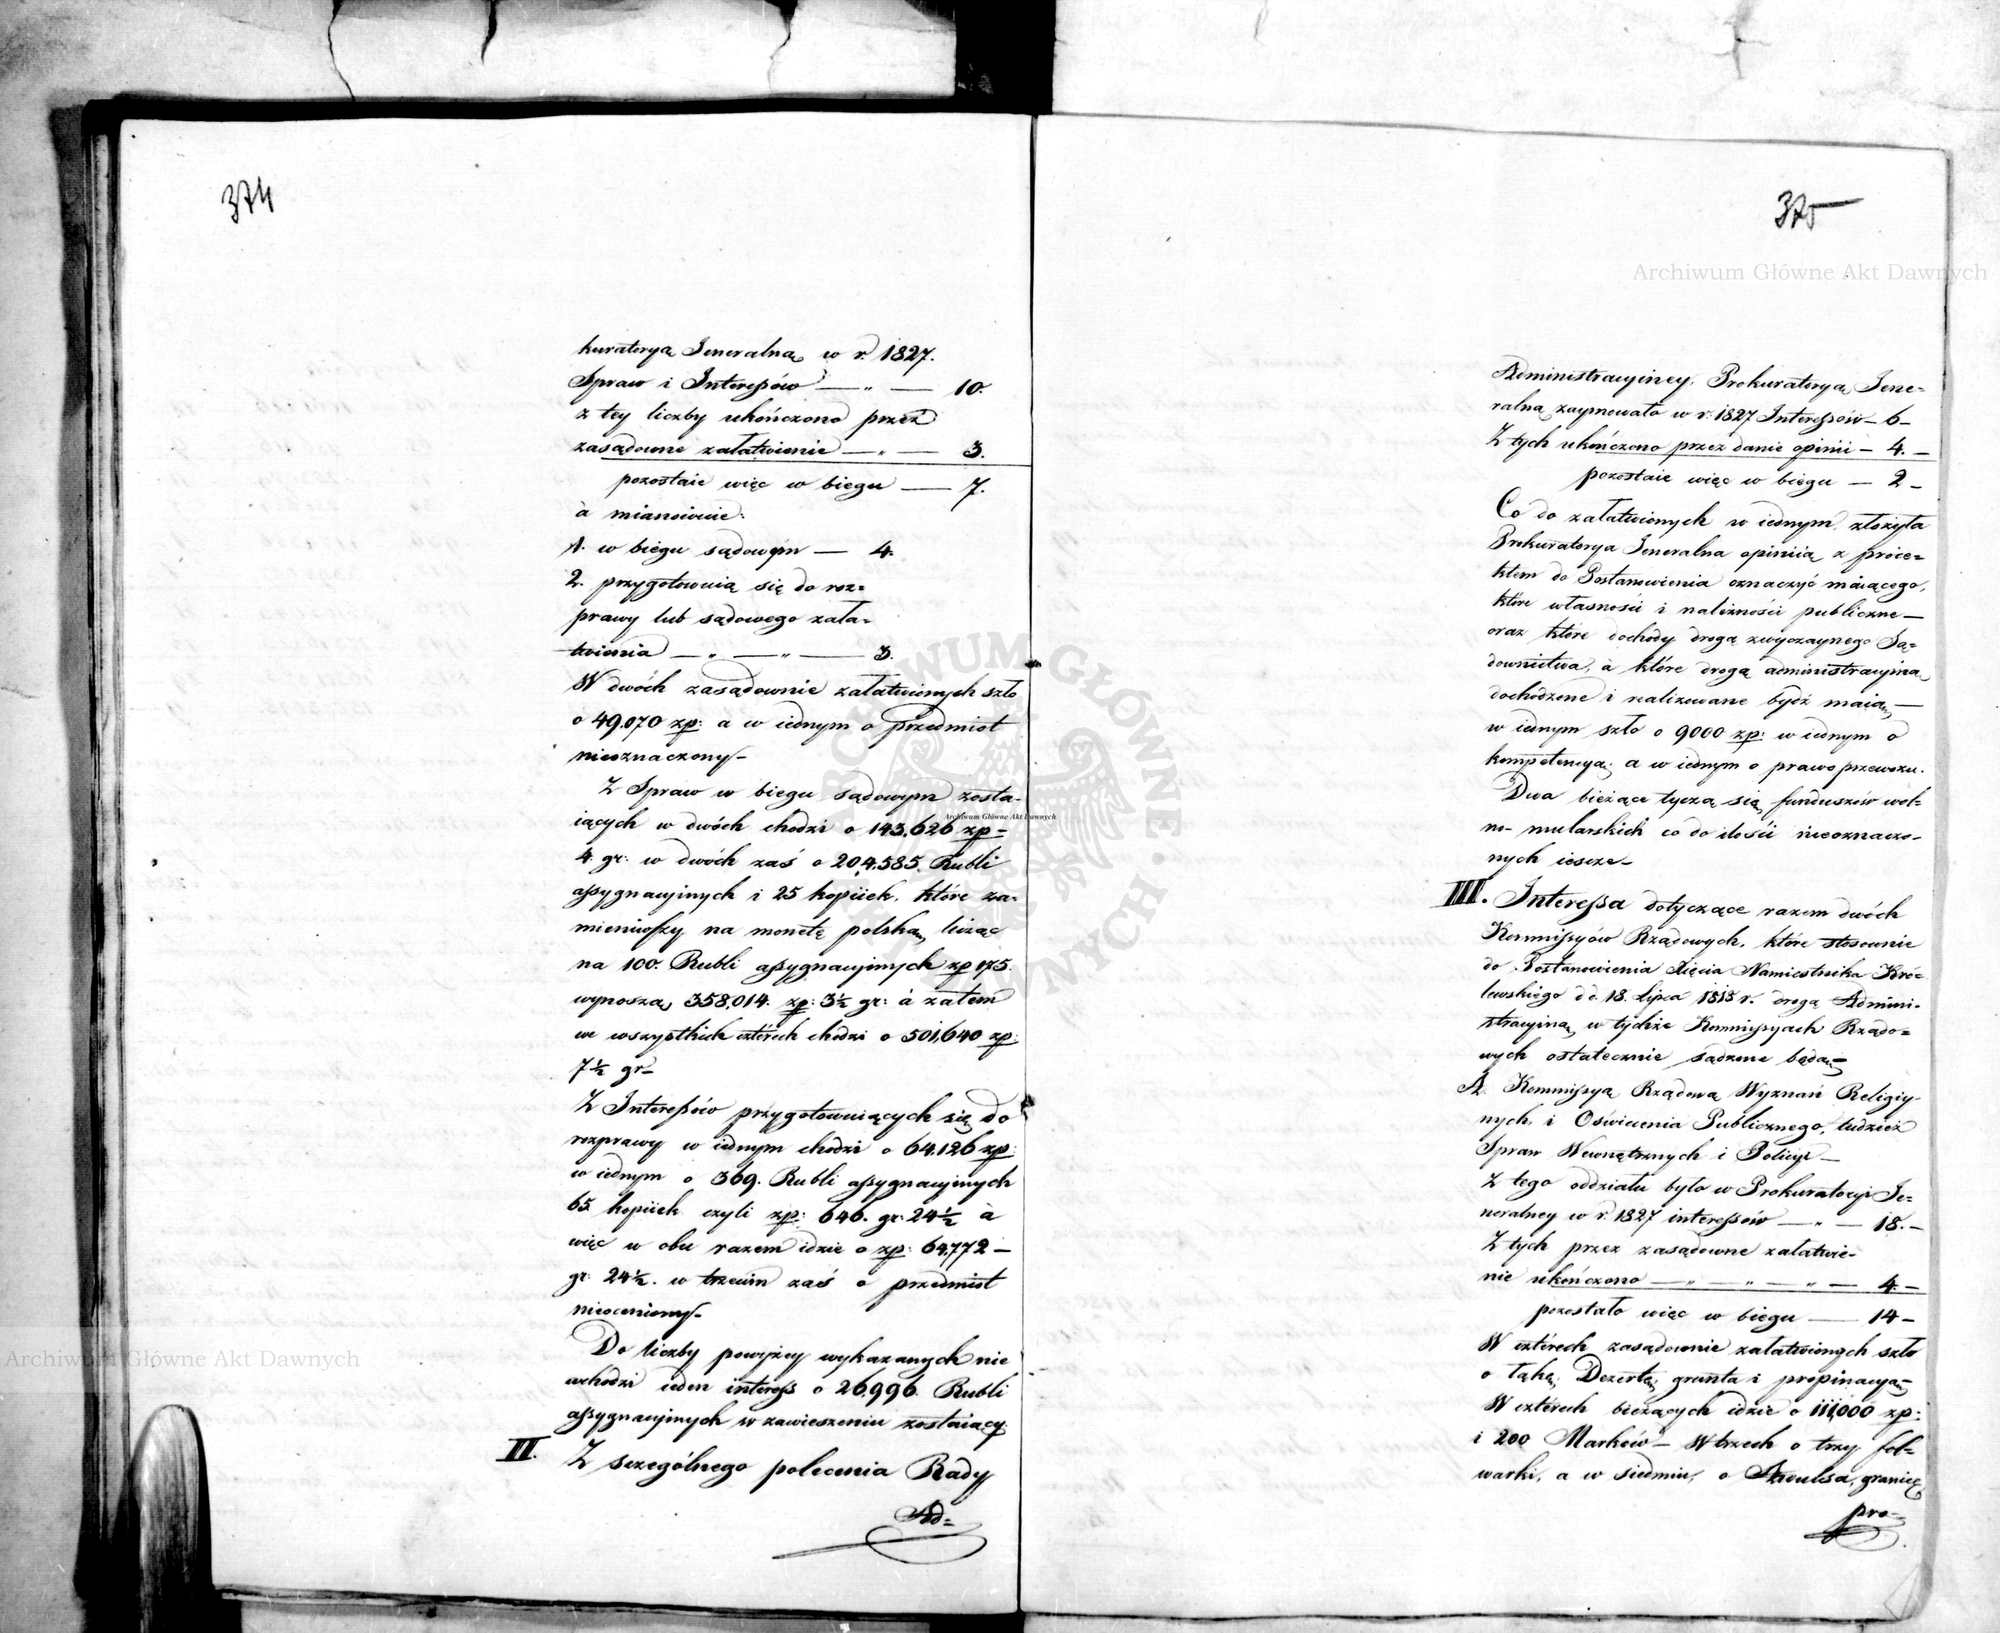 374
kuratoryą Jeneralną w r. 1827.
Spraw i Interessów — „ — 10.
z tey liczby ukończono przez
zasądowne załatwienie — „ — 3.
pozostaie więc w biegu — 7.
à mianowicie:
1. w biegu sądowym — 4.
2. przygotowuią się do roz=
prawy lub sądowego zała=
twienia — „ — „ — 3.
W dwóch zasądownie załatwionych szło
o 49,070 zp: a w iednym o przedmiot
nieoznaczony.
Z Spraw w biegu sądowym zosta-
iących w dwóch chodzi o 143,626 zp
4 gr: w dwóch zaś o 204,585 Rubli
assygnacyinych i 25 kopiiek, które za-
mieniwszy na monetę polską, licząc
na 100. Rubli assygnacyinych zp 175.
wynoszą 358,014. zp: 3½ gr: à zatem
we wszystkich czterech chodzi o 501,640 zp:
7½ gr
Z Interessów przygotowuiących się do
rozprawy w iednym chodzi o 64,126 zp:
w iednym o 369. Rubli assygnacyinych
65 kopiiek czyli zp: 646. gr: 24½ à
więc w obu razem idzie o zp: 64,772
gr: 24½. w trzecim zaś o przedmiot
nieoceniony.
Do liczby powyżey wykazanych nie
wchodzi ieden interess o 26,996. Rubli
assygnacyinych w zawieszeniu zostaiący.
II. Z szczególnego polecenia Rady
Ad=
375
Archiwum Główne Akt Dawnych
Administracyiney, Prokuratoryą Jene=
ralną zaymowało w r. 1827 Interessów — 6 —
Z tych ukończono przez danie opinii — 4. —
pozostaie więc w biegu — 2 —
Co do załatwionych w iednym, złożyła
Prokuratorya Jeneralna opiniią z proie=
ktem do Postanowienia oznaczyć maiącego,
które własności i należności publiczne —
oraz które dochody drogą zwyczaynego Są=
downictwa, à które drogą administracyiną
dochodzone i realizowane bydź maią, —
w iednym szło o 9000 zp: w iednym o
kompetencyą, a w iednym o prawo przewozu.
Dwa bieżące tyczą się funduszów wol=
no-mularskich co do ilości nieoznaczo-
nych ieszcze.
III. Interessa dotyczące razem dwóch
Kommissyów Rządowych, które stosownie
do Postanowienia Xięcia Namiestnika Kró=
lewskiego dd. 18. Lipca 1818 r. drogą Admini-
stracyiną w tychże Kommissyach Rządo=
wych ostatecznie sądzone będą
A. Kommissya Rządowa Wyznań Religiy-
nych, i Oświecenia Publicznego, tudzież
Spraw Wewnętrznych i Policyi —
Z tego oddziału było w Prokuratoryi Je=
neralney w r. 1827 interessów — „ — 18. —
Z tych przez zasądowne załatwie-
nie ukończono — „ — „ — „ — 4. —
pozostało więc w biegu — 14 —
W czterech zasądownie załatwionych szło
o łąkę, Dezertę, grunta i propinacyą
W czterech bieżących idzie o 111,000 zp:
i 200 Marków — W trzech o trzy fol=
warki, a w siedmiu, o granicę
pro=
Archiwum Główne Akt Dawnych
Archiwum Główne Akt Dawnych
ARCHIWUM GŁÓWNE AKT DAWNYCH